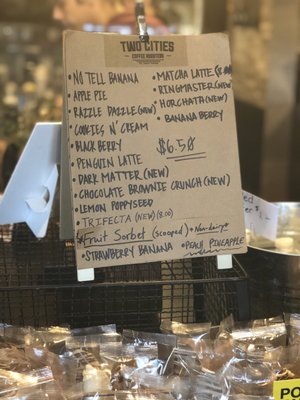 TWO CITIES
COFFEE ROASTERS
• NO TELL BANANA
APPLE PIE
RAZZLE DAZZLE (NEW)
COOKIES N' CREAM
BLACKBERRY
PENGUIN LATTE
• DARK MATTER (NEW)
• CHOCOLATE BROWNIE CRUNCH (NEW)
• LEMON POPPYSEED
TRIFECTA (NEW) (8.00)
Fruit Sorbet (scooped) • Non-dairy
• STRAWBERRY BANANA • PEACH PINEAPPLE
• MATCHA LATTE
• RINGMASTER (NEW)
• HORCHATA (NEW)
• BANANA BERRY
$6.50